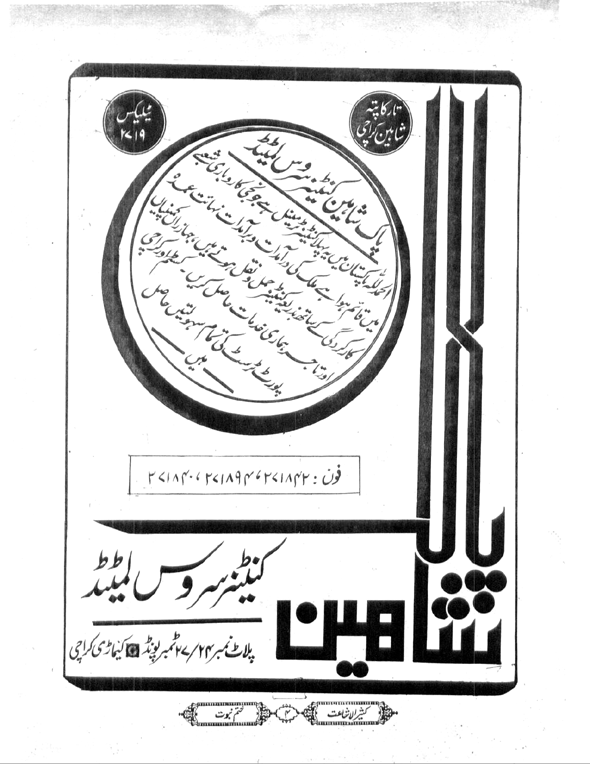 تار کا پتہ
شاہین کراچی
ٹیلیکس
۲۷۱۹
پاک شاہین کنٹینر سروس لمیٹڈ
الحمد للہ پاکستان میں یہ پہلا کنٹینر ٹرمینل ہے جو نجی کاروباری شعبے
میں قائم ہوا ہے ملک کی درآمدات و برآمدات نہایت عمدہ
کارکردگی کے ساتھ بذریعہ کنٹینر حمل و نقل ہوتے ہیں، جہاز راں کمپنیاں
اور تاجر ہماری خدمات حاصل کریں۔ کسٹم اور کراچی
پورٹ ٹرسٹ کی تمام سہولتیں حاصل
ہیں
فون : ۲۷۱۸۴۲، ۲۷۱۸۹۴، ۲۷۱۸۴۰
پاک
شاہین
کنٹینر سروس لمیٹڈ
پلاٹ نمبر ۲۷/۲۴ ٹمبر پونڈ کیماڑی کراچی
کثیر الاشاعت
۴
ختم نبوت